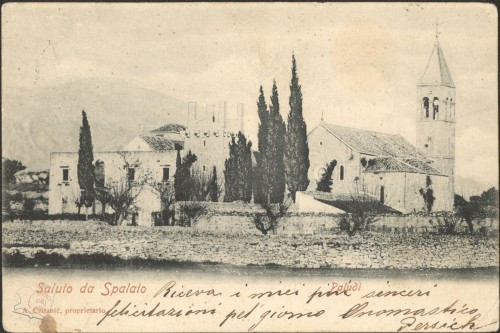 Saluto da Spalato
Paludi
A. Cattanić, proprietario
Riceva i miei più sinceri
felicitazioni pel giorno Onomastico
Persich